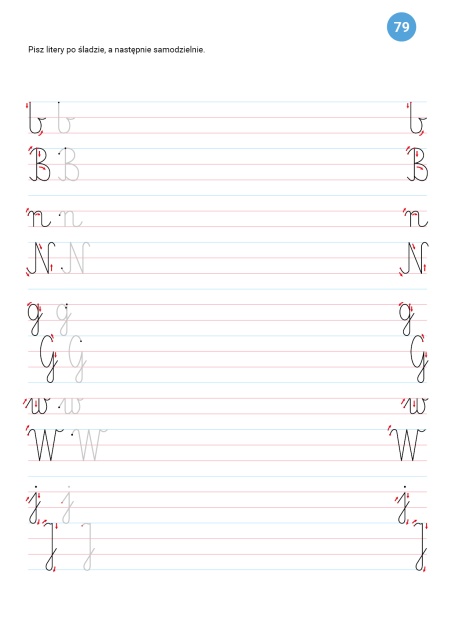 79
Pisz litery po śladzie, a następnie samodzielnie.
b b b
B B B
n n n
N N N
g g g
G G G
w w w
W W W
j j j
J J J